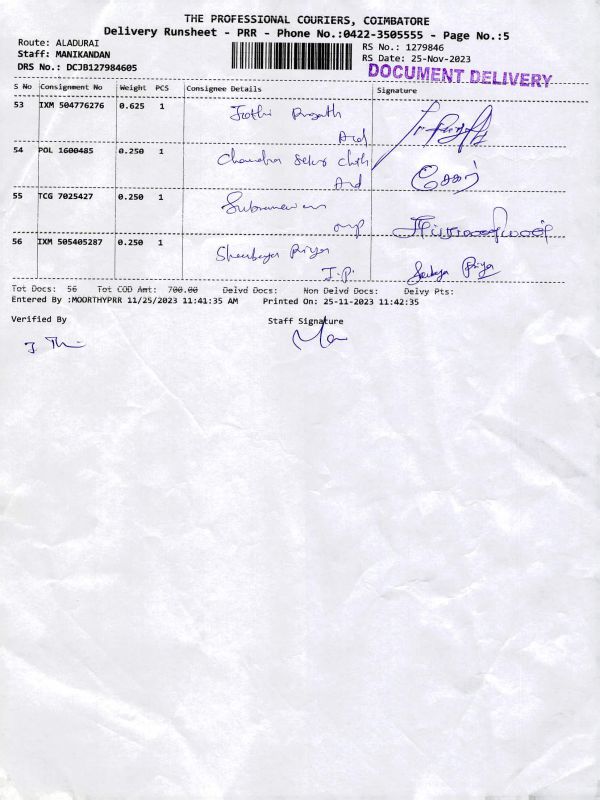 THE PROFESSIONAL COURIERS, COIMBATORE
Delivery Runsheet - PRR - Phone No.:0422-3505555 - Page No.:5
Route: ALADURAI
Staff: MANIKANDAN
DRS No.: DCJB127984605
RS No.: 1279846
RS Date: 25-Nov-2023
DOCUMENT DELIVERY
S No Consignment No Weight PCS Consignee Details Signature
53 IXM 504776276 0.625 1
54 POL 1600485 0.250 1 Chandra
55 TCG 7025427 0.250 1
56 IXM 505405287 0.250 1 Priya
Tot Docs: 56 Tot COD Amt: 700.00 Delvd Docs: Non Delvd Docs: Delvy Pts:
Entered By :MOORTHYPRR 11/25/2023 11:41:35 AM Printed On: 25-11-2023 11:42:35
Verified By Staff Signature